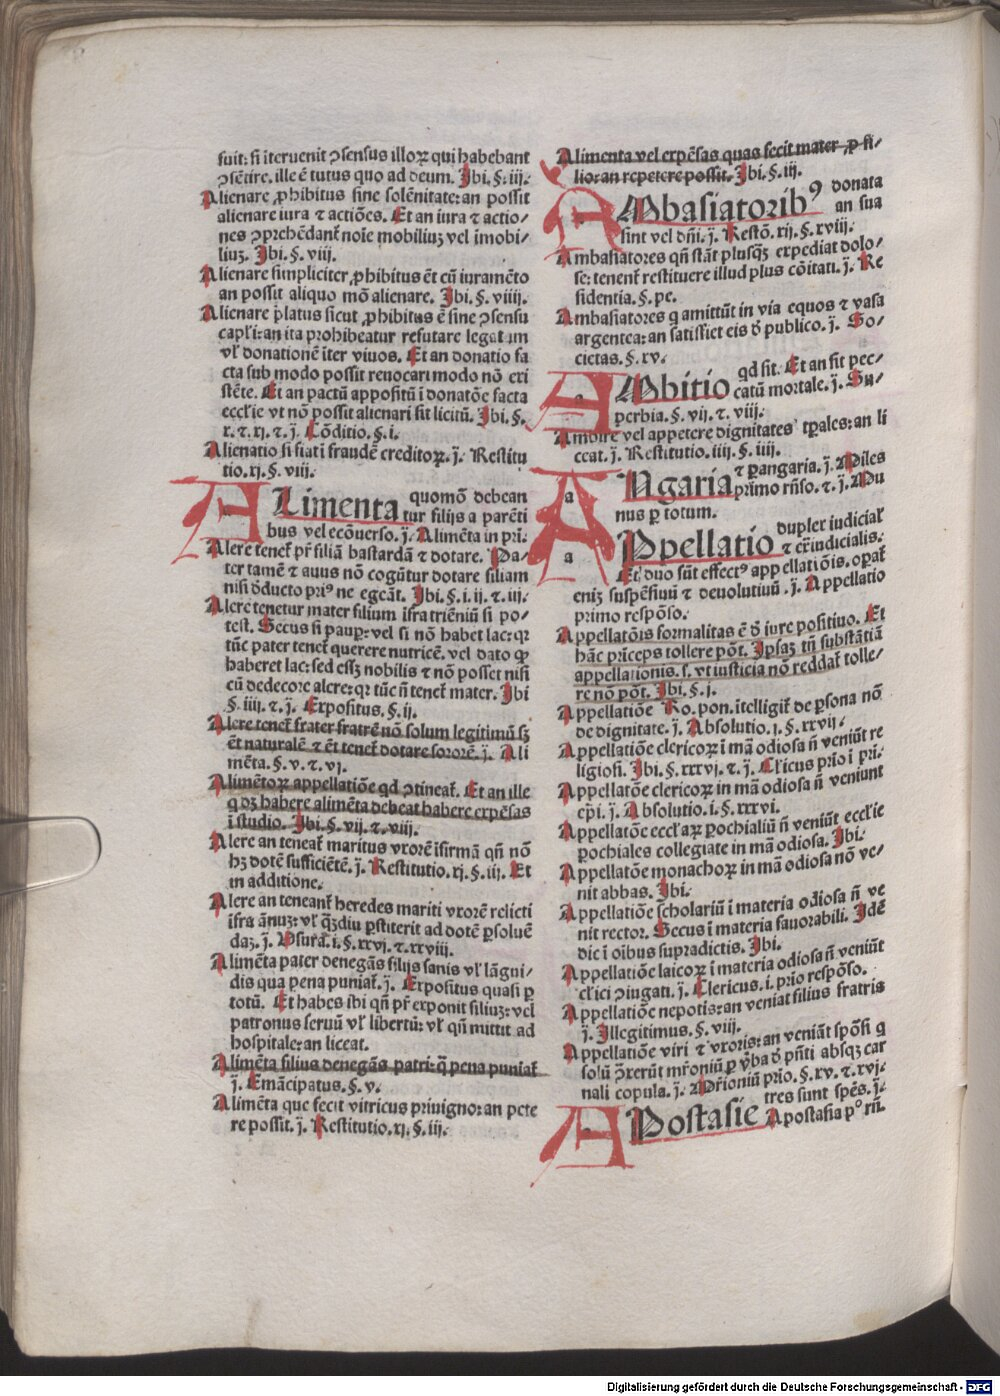 fuit: si īteruenit ꝯsensus illoꝝ qui habebant
ꝯsētire. ille ē tutus quo ad deum. Ibi. §. iij.
Alienare ꝓhibitus sine solēnitate: an possit
alienare iura ⁊ actiōes. Et an iura ⁊ actio⸗
nes ꝯprehēdanť noīe mobiliuꝫ vel imobi⸗
liuꝫ. Ibi. §. viij.
Alienare simpliciter ꝓhibitus ēt cū iuramēto
an possit aliquo mō alienare. Ibi. §. viiij.
Alienare p̄latus sicut ꝓhibitus ē sine ꝯsensu
capl̓i: an ita prohibeatur refutare legatum
vl̓ donationē īter viuos. Et an donatio fa
cta sub modo possit reuocari modo nō exi
stēte. Et an pactū appositū ī donatōe facta
eccl̓ie vt nō possit alienari sit licitū. Ibi. §.
x. ⁊. xj. ⁊. j̄. Cōditio. §. i.
Alienatio si fiat ī fraudē creditoꝝ. j̄. Restitu
tio. xj. §. viij.
ALimenta quomō debean
tur filijs a parēti
bus vel ecōuerso. j̄. Alimēta in pri.
Alere teneť pr̄ filiā bastardā ⁊ dotare. Pa⸗
ter tamē ⁊ auus nō cogūtur dotare filiam
nisi ꝺ̄ducto priꝰ ne egeāt. Ibi. §. i. ij. ⁊. iij.
Alere tenetur mater filium īfra triēniū si po⸗
test. Secus si paup̱: vel si nō habet lac: qꝛ
tūc pater teneť querere nutricē. vel dato ꝙ
haberet lac: sed essꝫ nobilis ⁊ nō posset nisi
cū dedecore alere: qꝛ tūc n̄ teneť mater. Ibi
§. iiij. ⁊. j̄. Expositus. §. ij.
Alere teneť frater fratrē nō solum legitimū sꝫ
ēt naturalē ⁊ ēt teneť dotare sororē. j̄. Ali
mēta. §. v. ⁊. vj.
Alimētoꝝ appellatiōe qd ꝯtineať. Et an ille
q dꝫ habere alimēta debeat habere expēsas
ī studio. Ibi. §. vij. ⁊. viij.
Alere an teneať maritus vxorē īfirmā qn̄ nō
hꝫ dotē sufficiētē. j̄. Restitutio. xj. §. iij. Et
in additione.
Alere an teneanť heredes mariti vxorē relicti
īfra ānuꝫ: vl̓ q̄ꝫdiu p̱stiterit ad dotē p̱soluē
daꝫ. j̄. Vsura. i. §. xxvj. ⁊. xxviij.
Alimēta pater denegās filijs sanis vl̓ lāgui⸗
dis qua pena puniať. j̄. Expositus quasi p̱
totū. Et habes ibi qn̄ pr̄ exponit filiuꝫ: vel
patronus seruū vl̓ libertū: vl̓ qn̄ mittit ad
hospitale: an liceat.
Alimēta filius denegās patri: q̄ pena puniať
j̄. Emācipatus. §. v.
Alimēta que fecit vitricus priuigno: an pete
re possit. j̄. Restitutio. xj. §. iij.
Alimenta vel expēsas quas fecit mater ꝓ fi⸗
lio: an repetere possit. Ibi. §. iij.
AMbasiatoribꝰ donata
an sua
sint vel dn̄i. j̄. Restō. xij. §. xviij.
Ambasiatores qn̄ stāt plusqꝫ expediat dolo⸗
se: tenenť restituere illud plus cōitati. j̄. Re
sidentia. §. pe.
Ambasiatores q amittūt in via equos ⁊ vasa
argentea: an satisfiet eis ꝺ̄ publico. j̄. So⸗
cietas. §. xv.
AMbitio qd sit. Et an sit pec⸗
catū mortale. j̄. Su⸗
perbia. §. vij. ⁊. viij.
Ambire vel appetere dignitates tp̱ales: an li
ceat. j̄. Restitutio. iiij. §. iiij.
a
ANgaria ⁊ p̱angaria. j̄. Miles
primo rn̄so. ⁊. j̄. Mu
nus p̱ totum.
APpellatio duplex iudicial̓
⁊ ex̄iudicialis.
a
Et duo sūt effectꝰ appellatiōis. op̱ať
eniꝫ suspēsiuū ⁊ deuolutiuū. j̄. Appellatio
primo respōso.
Appellatōis formalitas ē ꝺ̄ iure positiuo. Et
hāc prīceps tollere pōt. Ipsaꝫ tn̄ substātiā
appellationis. s. vt iusticia nō reddať tolle⸗
re nō pōt. Ibi. §. j.
Appellatiōe Ro. pon. ītelligiť de p̱sona nō
de dignitate. j̄. Absolutio. i. §. xxvij.
Appellatiōe clericoꝝ ī mā odiosa n̄ veniūt re
ligiosi. Ibi. §. xxxvj. ⁊. j̄. Cl̓icus prio ī pri.
Appellatōe clericoꝝ in mā odiosa n̄ veniunt
ep̄i. j̄. Absolutio. i. §. xxxvi.
Appellatōe eccl̓aꝝ p̱ochialiū n̄ veniūt eccl̓ie
p̱ochiales collegiate in mā odiosa. Ibi.
Appellatōe monachoꝝ in mā odiosa nō ve⸗
nit abbas. Ibi.
Appellatiōe scholariū ī materia odiosa n̄ ve
nit rector. Secus ī materia fauorabili. Idē
dic ī oībus supradictis. Ibi.
Appellatiōe laicoꝝ ī materia odiosa n̄ veniūt
cl̓ici ꝯiugati. j̄. Clericus. i. prio respōso.
Appellatiōe nepotis: an veniat filius fratris
j̄. Illegitimus. §. viij.
Appellatiōe viri ⁊ vxoris: an veniāt spōsi q
solū ꝯ̄xerūt mr̄oniū p̱ v̓ba ꝺ̄ pn̄ti absqꝫ car
nali copula. j̄. Mr̄ioniū prio. §. xv. ⁊. xvj.
APostasie tres sunt spēs. j̄.
Apostasia pº rn̄.
Digitalisierung gefördert durch die Deutsche Forschungsgemeinschaft - DFG